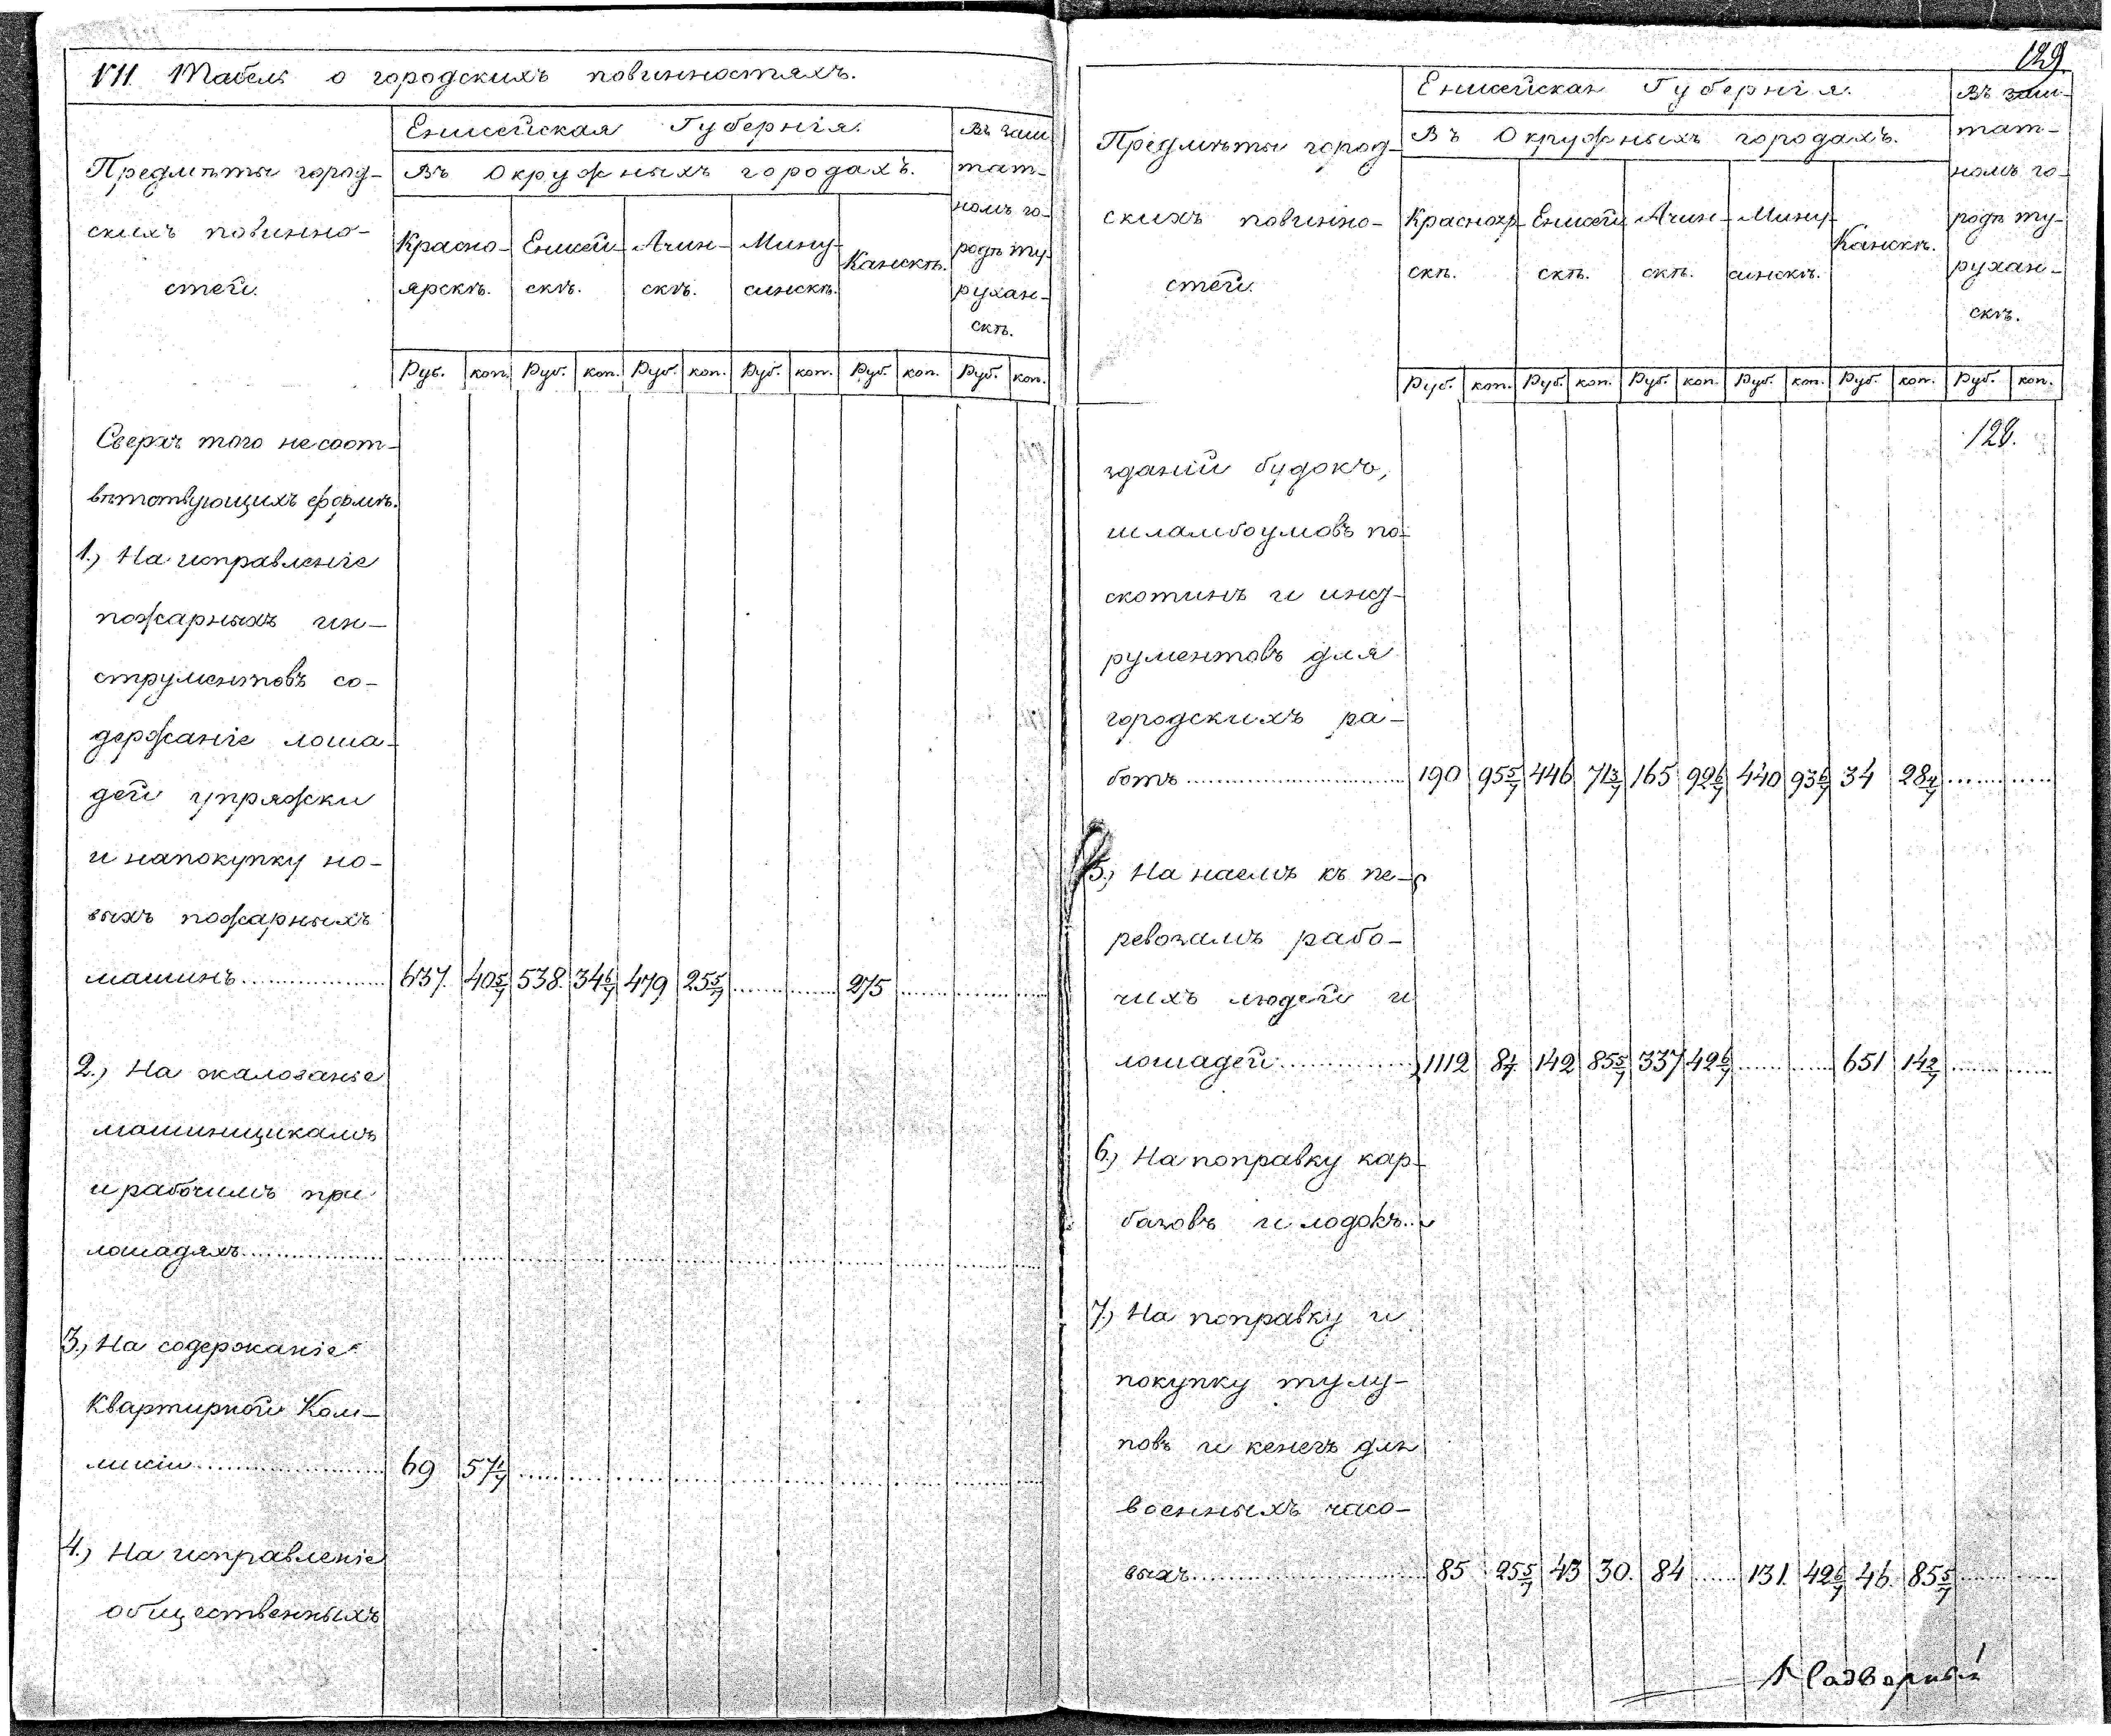 VII Табель о городскихъ повинностяхъ.
Предмѣты город-
скихъ повинно-
стей.
Енисейская Губернія.
Въ Окружныхъ городахъ.
Красно-
ярскѣ.
Енисей-
скѣ.
Ачин-
скѣ.
Мину-
синскѣ.
Канскѣ.
Въ заш
тат-
номъ го-
родѣ Ту-
рухан-
скѣ.
Руб. коп. Руб. коп. Руб. коп. Руб. коп. Руб. коп. Руб. коп.
Сверхъ того несоот-
вѣтствующихъ формѣ.
1., На исправленіе
пожарныхъ ин-
струментовъ со-
держаніе лоша-
дей упряжки
и напокупку но-
выхъ пожарныхъ
машинъ 637. 40 5/7 538. 34 6/7 479 25 5/7 275
2., На жалованье
машинщикамъ
и рабочимъ при
лошадяхъ
3., На содержаніе
Квартирной Ком-
мисіи 69 57 1/7
4., На исправленіе
общественныхъ
129.
Предмѣты город-
скихъ повинно-
стей.
Енисейская Губернія.
Въ Окружныхъ городахъ.
Краснояр-
скѣ.
Енисей
скѣ.
Ачин-
скѣ.
Мину-
синскѣ.
Канскѣ.
Въ заш-
тат-
номъ го-
родѣ Ту-
рухан-
скѣ.
Руб. коп. Руб. коп. Руб. коп. Руб. коп. Руб. коп. Руб. коп.
128.
зданій будокъ,
шламбоумовъ по-
скотинъ и инст-
рументовъ для
городскихъ ра-
ботъ 190 95 5/7 446 71 3/7 165 92 6/7 440 93 6/7 34 28 4/7
5., На наемъ къ пе-
ревозамъ рабо-
чихъ людей и
лошадей 1112 8 4/7 142 85 5/7 337 42 6/7 651 14 2/7
6., На поправку кар-
базовъ и лодокъ
7., На поправку и
покупку тулу-
повъ и кенегъ для
военныхъ часо-
выхъ 85 25 5/7 43 30. 84 131. 42 6/7 46. 85 5/7